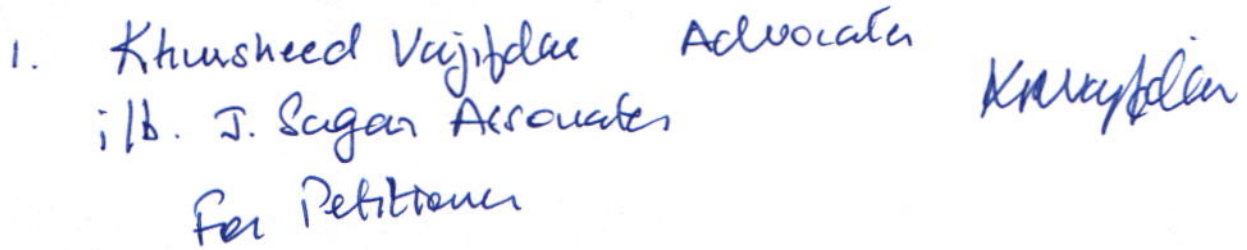 1. Khursheed Vajifdar Advocates
i/b. J. Sagar Associates
For Petitioner